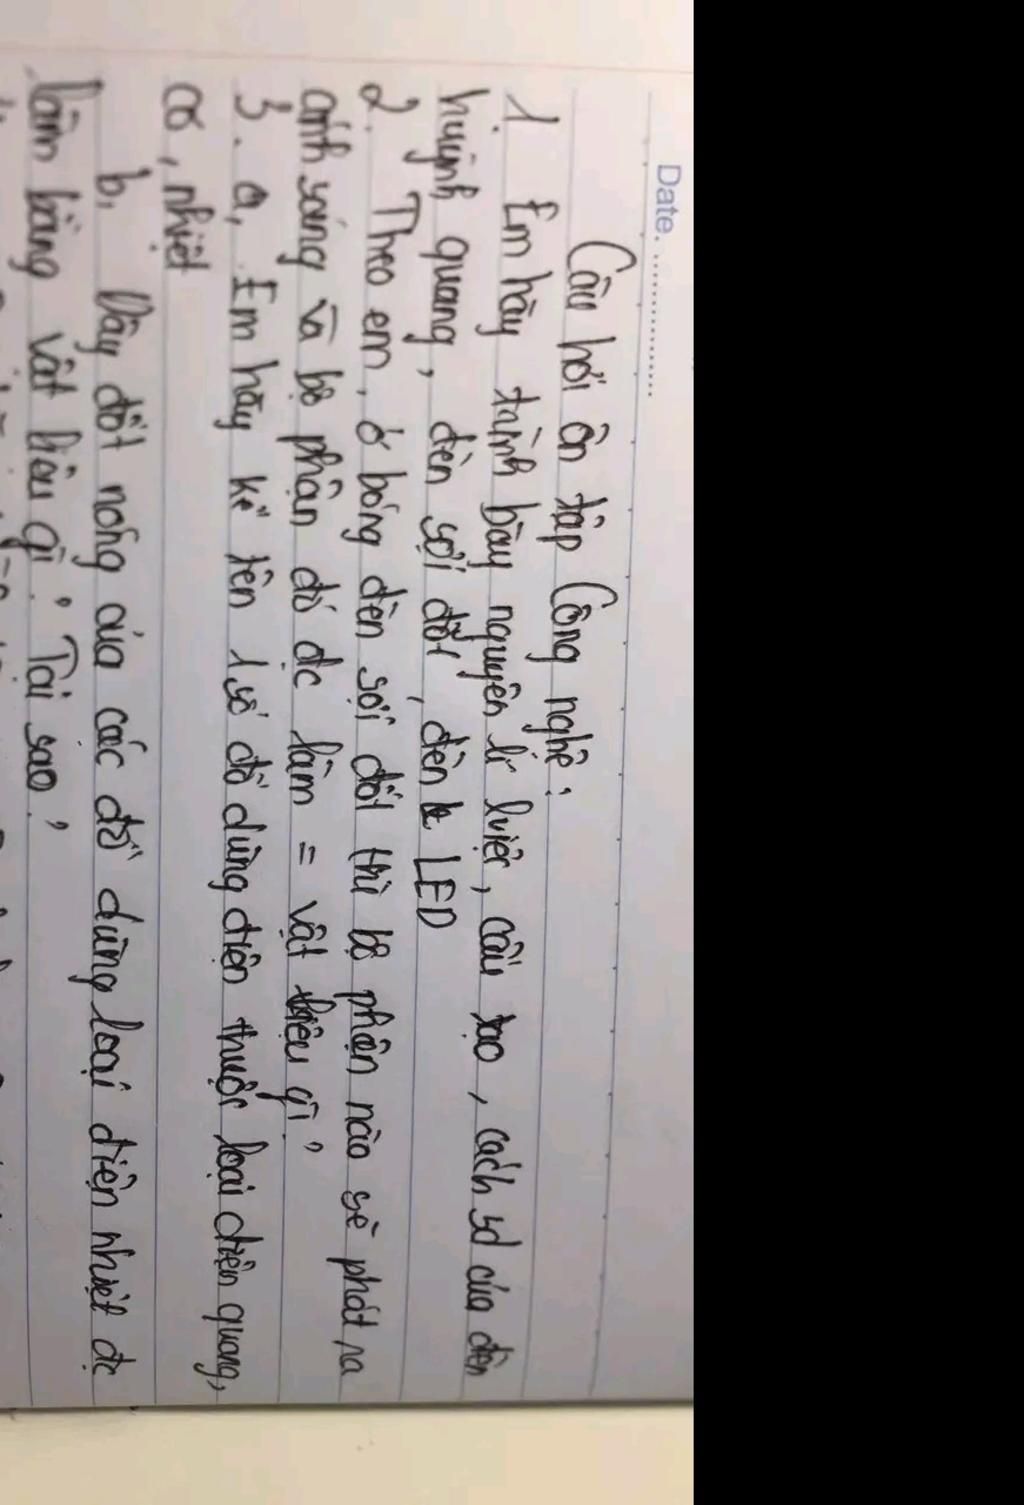 Date.............
Câu hỏi ôn tập Công nghệ:
1. Em hãy trình bày nguyên lí lviệc, cấu tạo, cách sd của đèn
huỳnh quang, đèn sợi đốt, đèn LED
2. Theo em, ở bóng đèn sợi đốt thì bộ phận nào sẽ phát ra
ánh sáng và bộ phận đó đc làm = vật liệu gì?
3. a, Em hãy kể tên 1 số đồ dùng điện thuộc loại điện quang,
cơ, nhiệt
b, Dây đốt nóng của các đồ dùng loại điện nhiệt đc
làm bằng vật liệu gì? Tại sao?